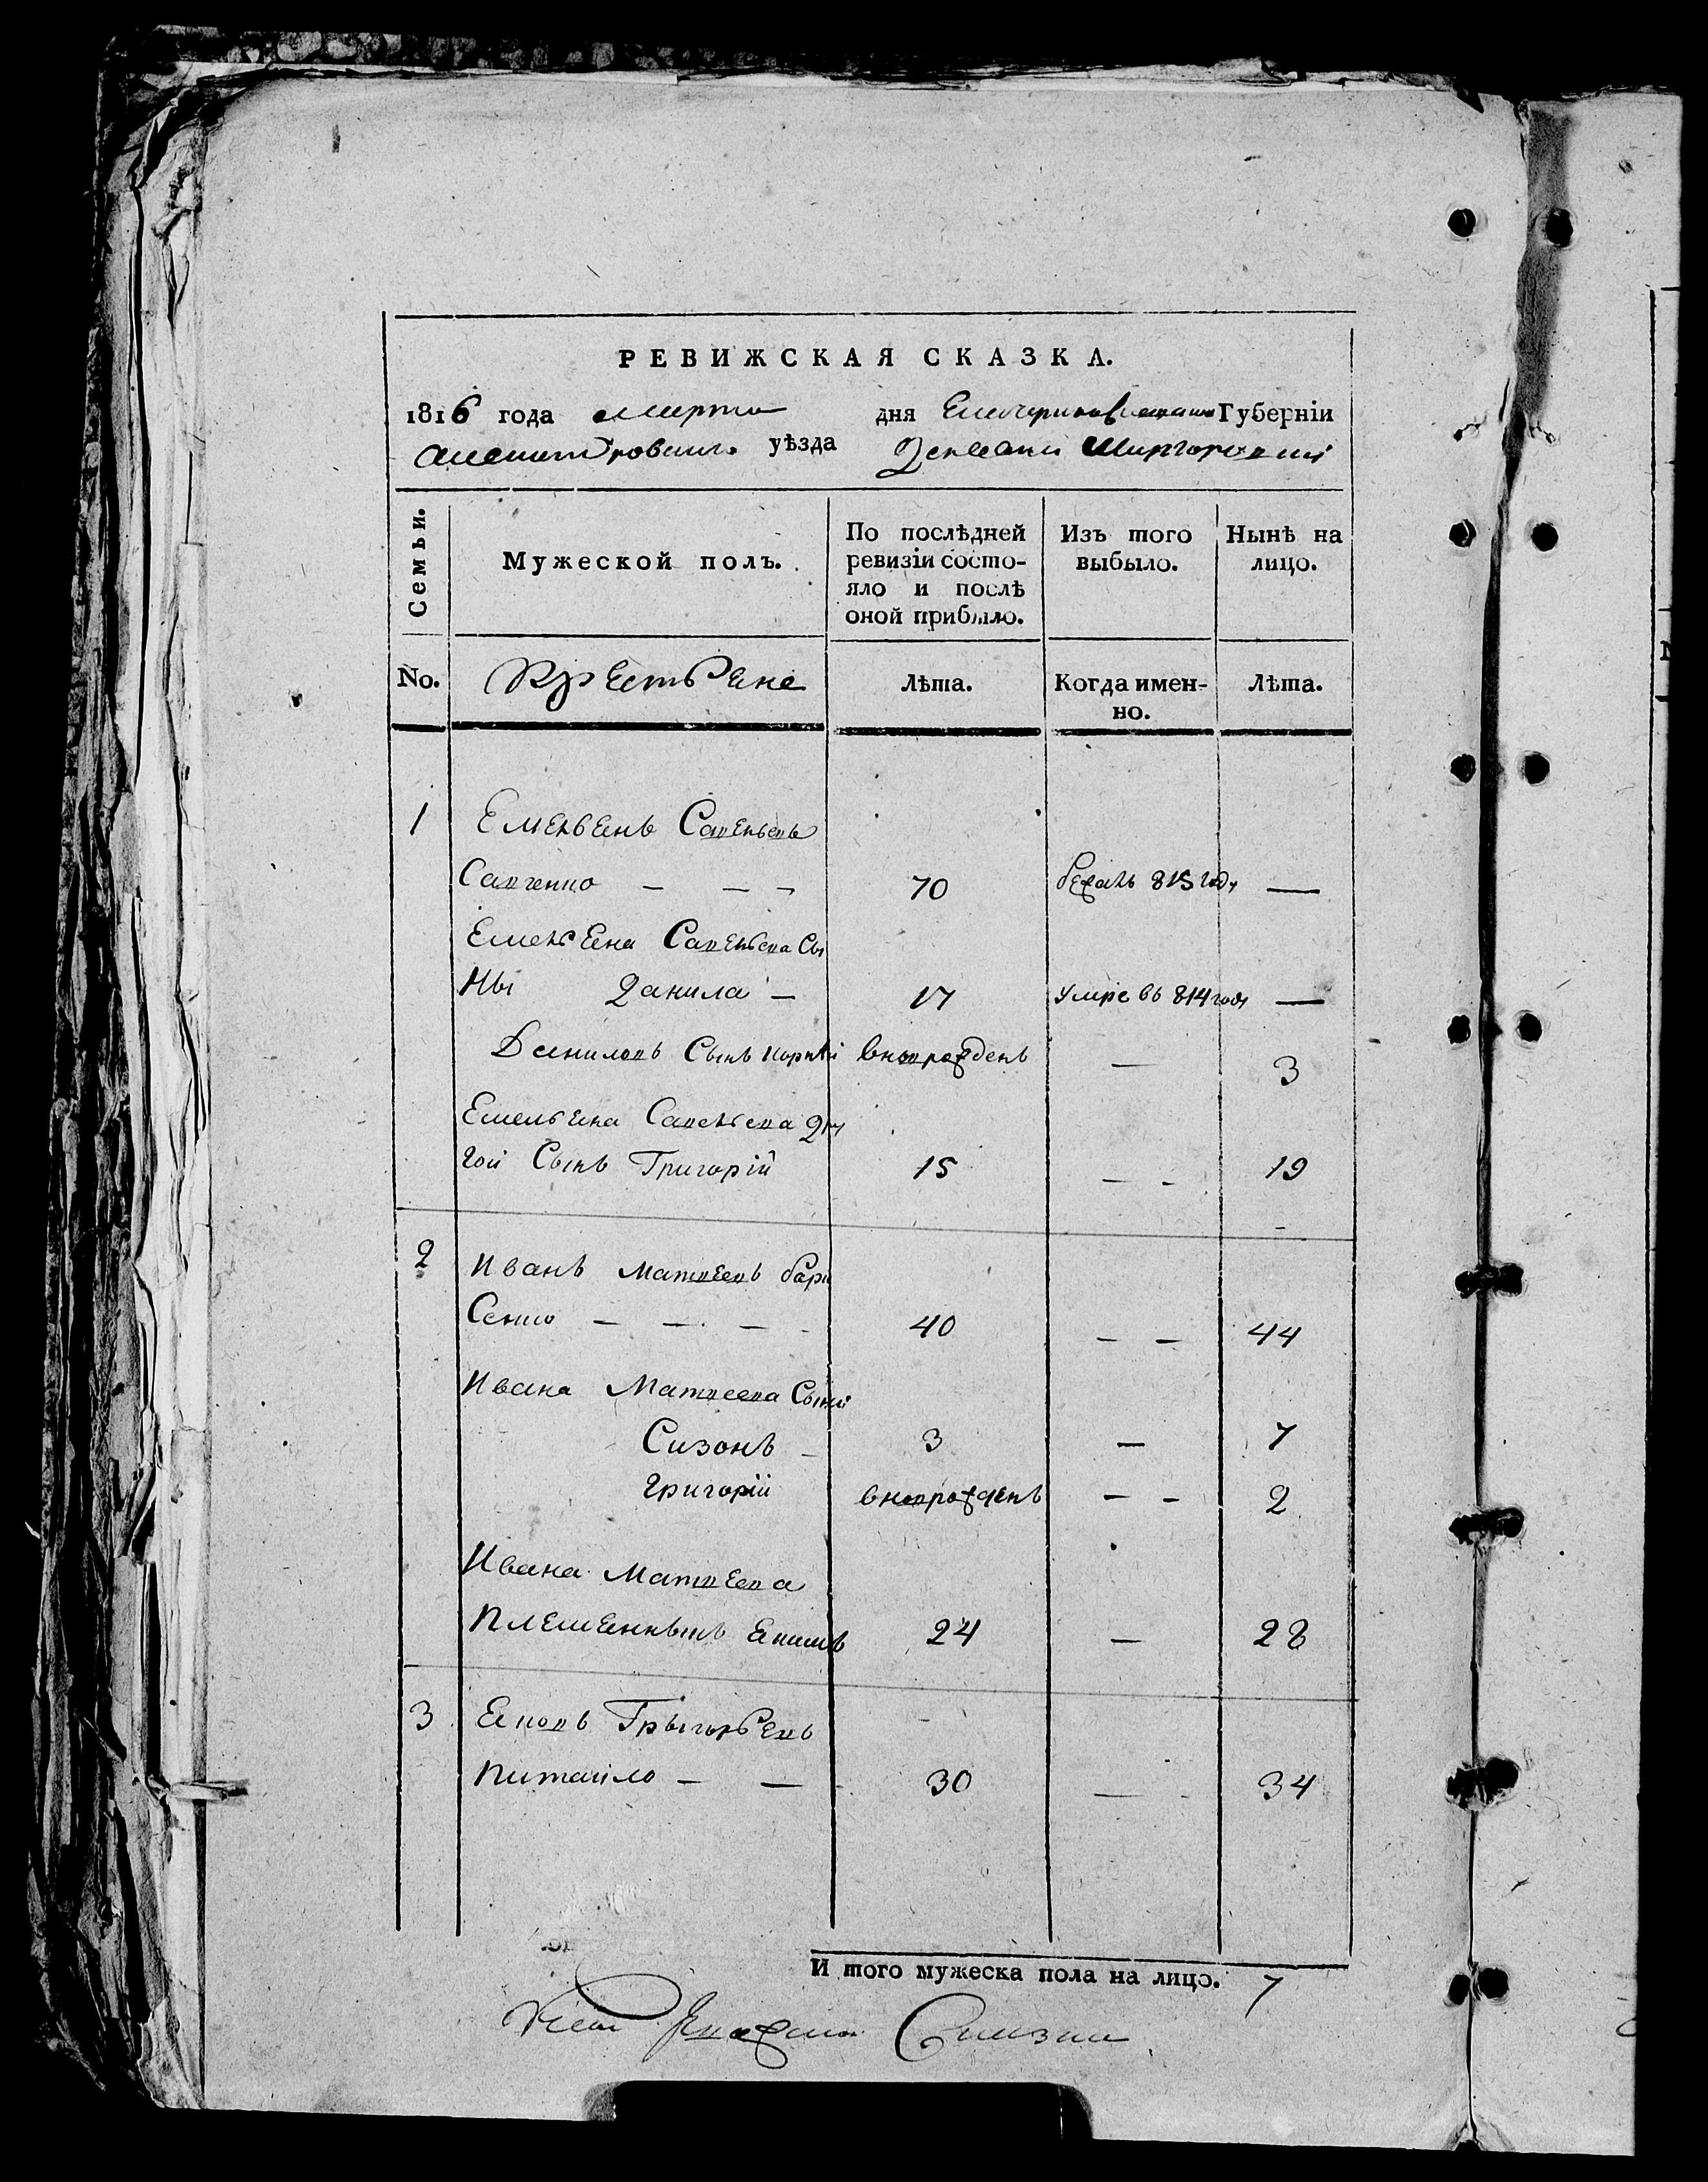 РЕВИЖСКАЯ СКАЗКА.
1816 года марта дня Екатеринославской Губерніи
Александровскаго уѣзда
Семьи.
Мужеской полъ.
По послѣдней ревизіи состо-
яло и послѣ
оной прибыло.
Изъ того выбыло.
Нынѣ на лицо.
No.
Крестьяне
Лѣта.
Когда имен-
но.
Лѣта.
1 Емельянъ Савельевъ
Савченко — — — 70 бежалъ 815 году —
Емельяна Савельева Сы
ны Данила — 17 умре въ 814 году —
Даниловъ Сынъ Корней вноврожденъ — 3
Емельяна Савельева дру
гой Сынъ Григорій 15 — - 19
2 Иванъ Матвеевъ бори
Сенко — — — - 40 — — 44
Ивана Матвеева Сыни
Сизонъ - 3 — 7
Григорій вноврожденъ — - 2
Ивана Матвеева
племянникъ Якимъ 24 — 28
3 Яковъ Григорьевъ
Питайло — — 30 — - 34
И того мужеска пола на лицо. 7